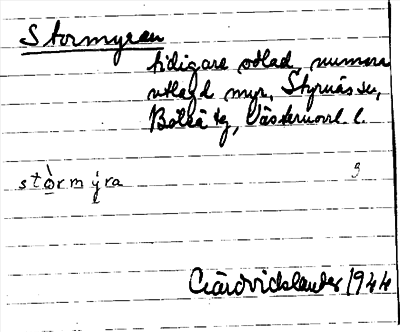 Stormyran
tidigare odlad, numera
utlagd myr, Styrnäs sn,
Boteå tg, Västernorrl. l.
stòrmýra 3
Wicklander 1944